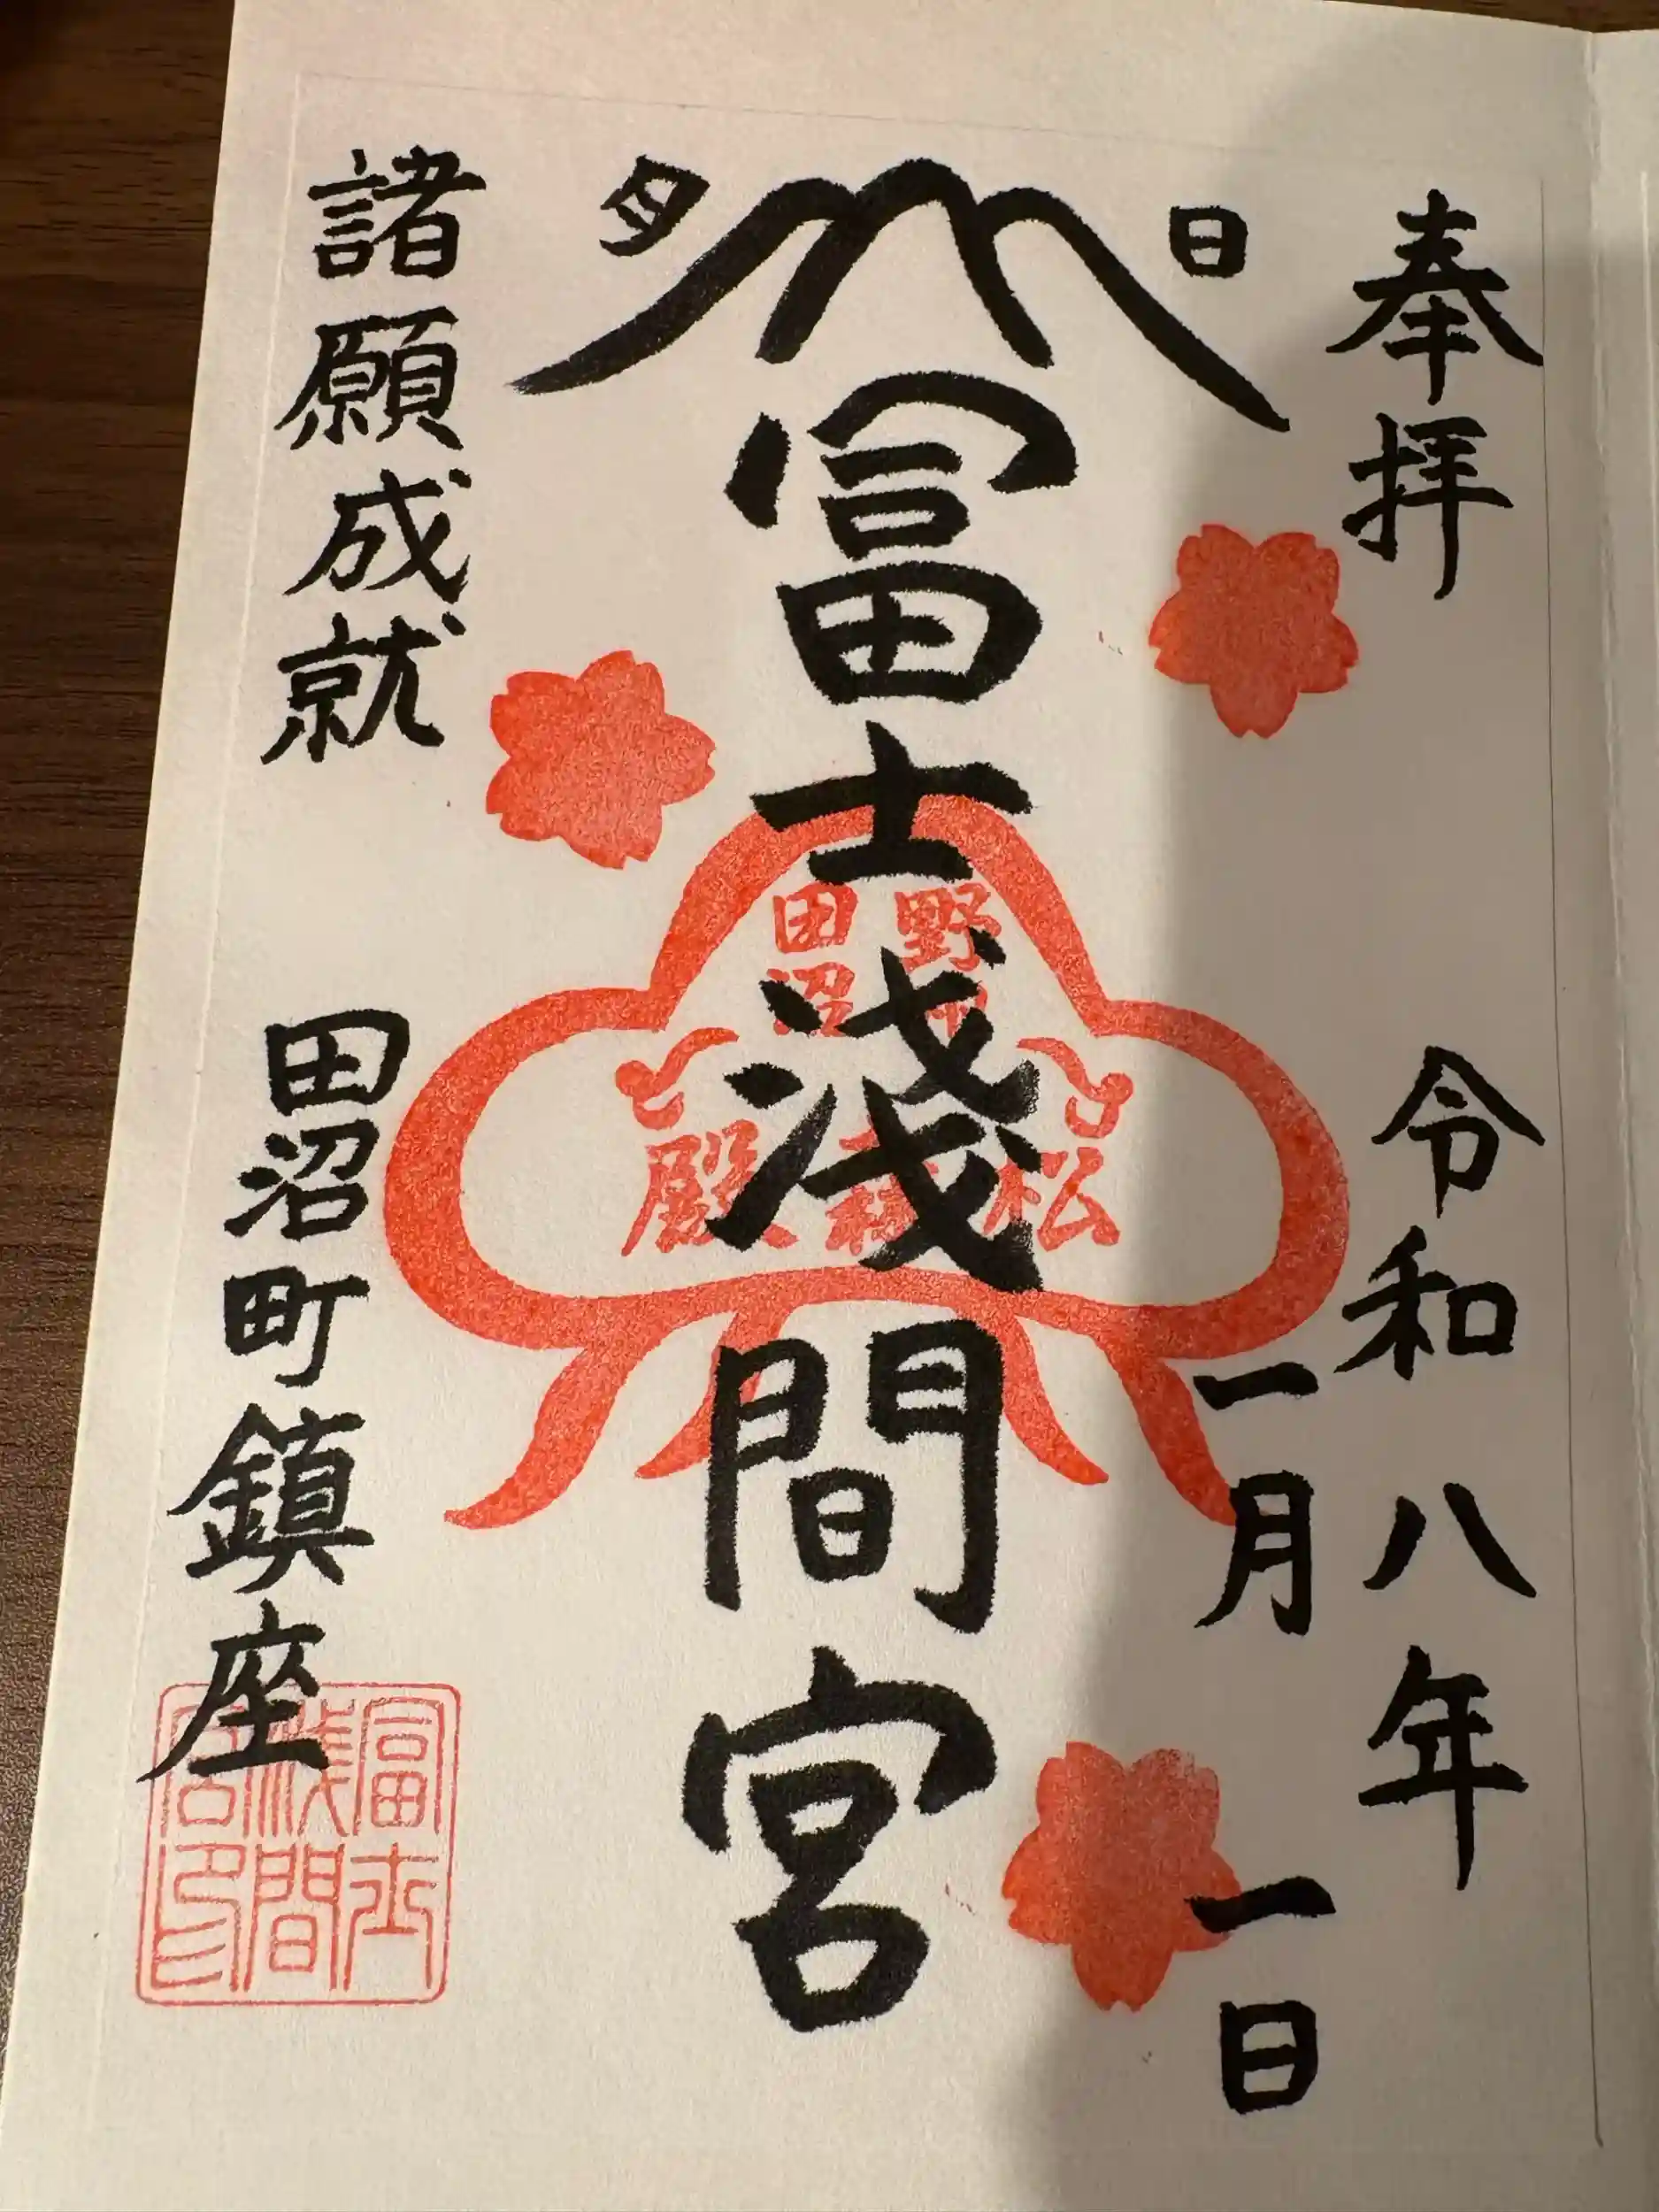 奉拝
令和八年
一月一日
日
月
冨士浅間宮
野州
田沼
松森殿
諸願成就
田沼町鎮座
冨士
浅間
宮印